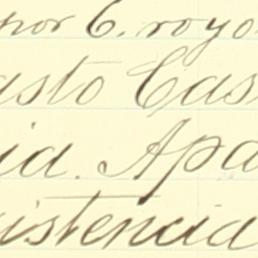 por C. royo
asto Cas
id. Apa
istencia